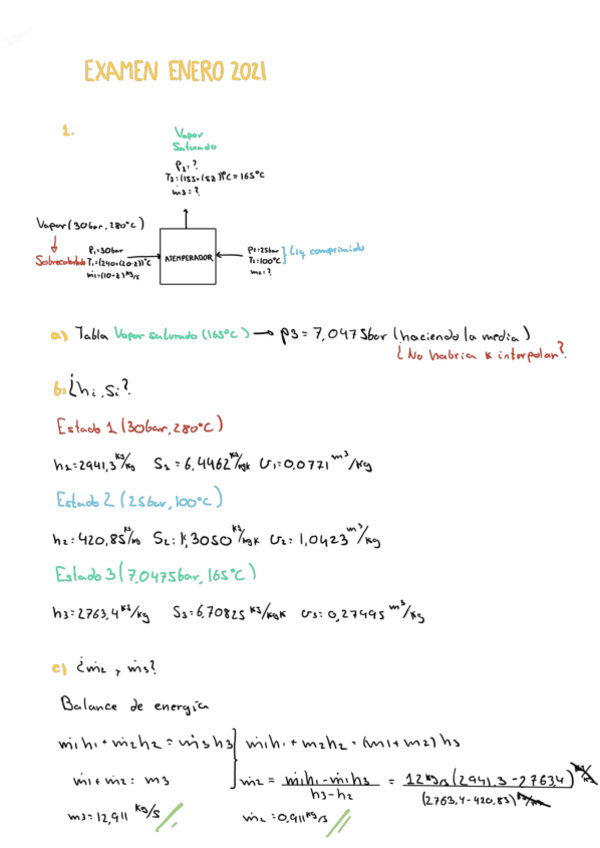 EXAMEN ENERO 2021
1.
Vapor
Saturado
P3=?
T3=(155+(5Z))ºC=165ºC
ṁ3=?
Vapor (30bar, 280ºC)
Sobrecalentado
P1=30bar
T1=(240+(20·Z))ºC
ṁ1=(10+Z)kg/s
ATEMPERADOR
P2=25bar
T2=100ºC
ṁ2=?
Liq comprimido
a) Tabla Vapor saturado (165ºC) → P3 = 7,0475bar (haciendo la media)
¿No habría k interpolar?
b) ¿hi, Si?
Estado 1 (30bar, 280ºC)
h1=2941,3 kJ/kg S1=6,4462 kJ/kgK v1=0,0771 m³/kg
Estado 2 (25bar, 100ºC)
h2=420,85 kJ/kg S2=1,3050 kJ/kgK v2=1,0423 m³/kg
Estado 3 (7,0475bar, 165ºC)
h3=2763,4 kJ/kg S3=6,70825 kJ/kgK v3=0,27495 m³/kg
c) ¿ṁ2 y ṁ3?
Balance de energía
ṁ1h1 + ṁ2h2 = ṁ3h3 ṁ1h1 + ṁ2h2 = (ṁ1+ṁ2) h3
ṁ1 + ṁ2 = ṁ3 ṁ2 = ṁ1h1 - ṁ1h3 / h3-h2 = 12 kg/s (2941,3 - 2763,4) / (2763,4-420,85)
ṁ3=12,911 kg/s ṁ2=0,911 kg/s